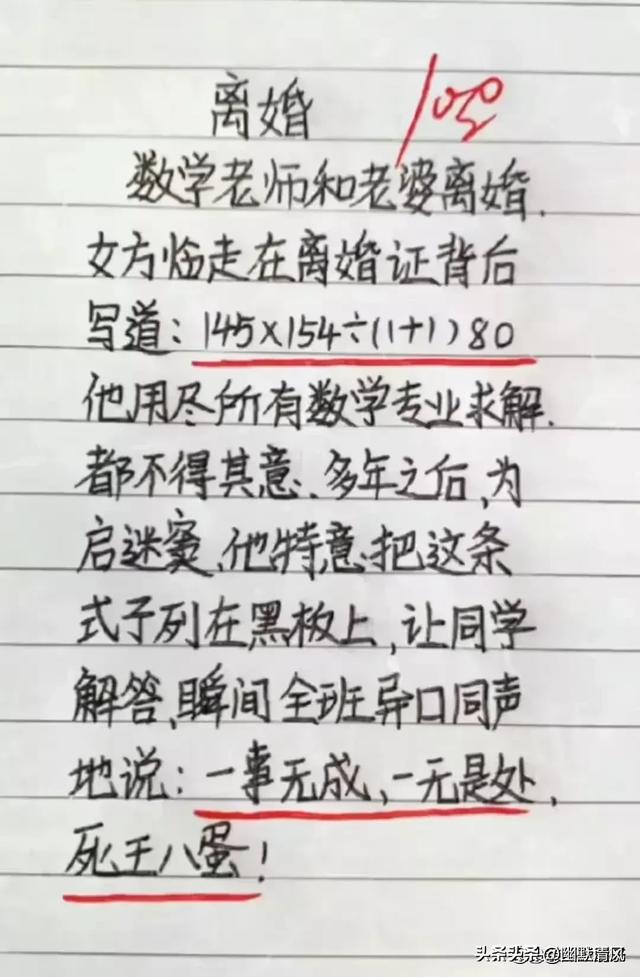 离婚 100
数学老师和老婆离婚.
女方临走在离婚证背后
写道:145×154÷(1+1)80
他用尽所有数学专业求解.
都不得其意.多年之后,为
启迷窦,他特意把这条
式子列在黑板上,让同学
解答,瞬间全班异口同声
地说:一事无成,一无是处,
死王八蛋!
头条 @幽默清风